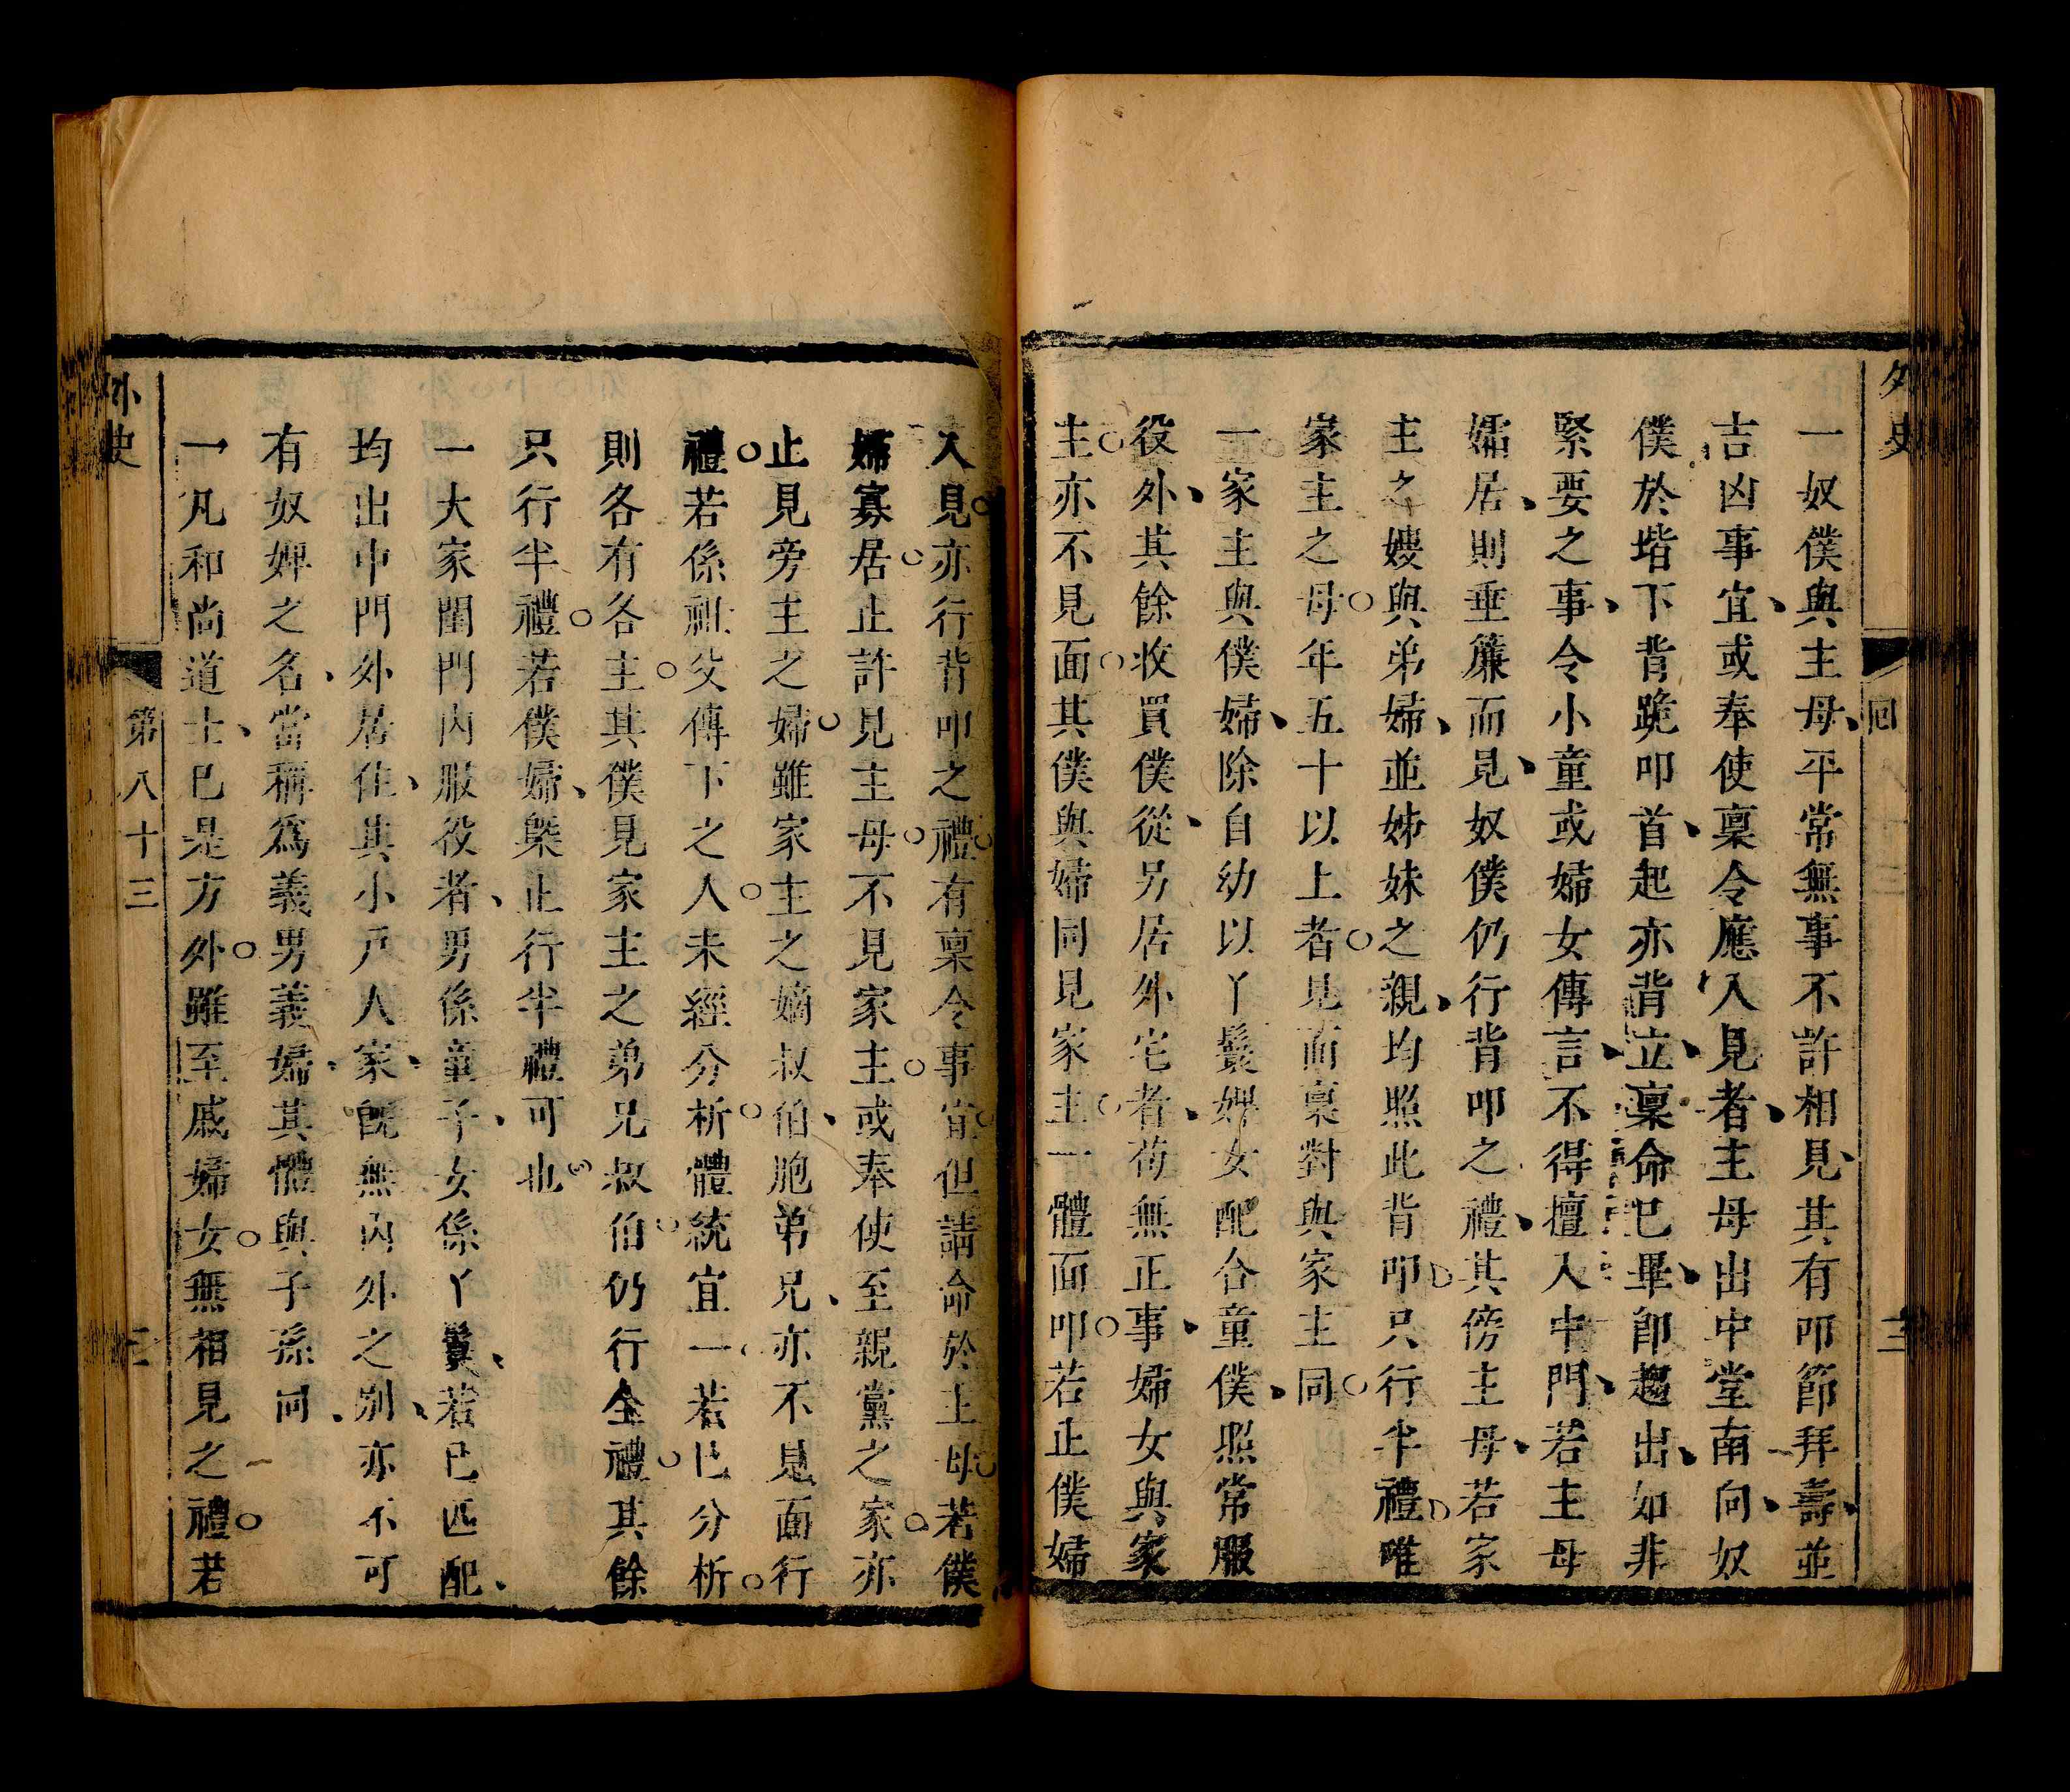 外史
回
三
一奴僕與主母平常無事不許相見其有叩節拜壽並
吉凶事宜或奉使稟令應入見者主母出中堂南向奴
僕於堦下背跪叩首起亦背立稟命已畢卽趨出如非
緊要之事令小童或婦女傳言不得擅入中門若主母
孀居則垂簾而見奴僕仍行背叩之禮其傍主母若家
主之嫂與弟婦並姊妹之親均照此背叩只行半禮唯
家主之母年五十以上者見而稟對與家主同
一家主與僕婦除自幼以丫鬟婢女配合童僕照常服
役外其餘收買僕從另居外宅者苟無正事婦女與家
主亦不見面其僕與婦同見家主一體面叩若止僕婦
入見亦行背叩之禮有稟令事宜但請命於主母若僕
婦寡居止許見主母不見家主或奉使至親黨之家亦
止見旁主之婦雖家主之嫡叔伯胞弟兄亦不見面行
禮若係祖父傳下之人未經分析體統宜一若已分析
則各有各主其僕見家主之弟兄叔伯仍行全禮其餘
只行半禮若僕婦槩止行半禮可也
一大家閨門內服役者男係童子女係丫鬟若已匹配
均出中門外居住其小戶人家旣無內外之別亦不可
有奴婢之名當稱爲義男義婦其體與子孫同
一凡和尚道士已是方外雖至戚婦女無相見之禮若
外史
第八十三
三